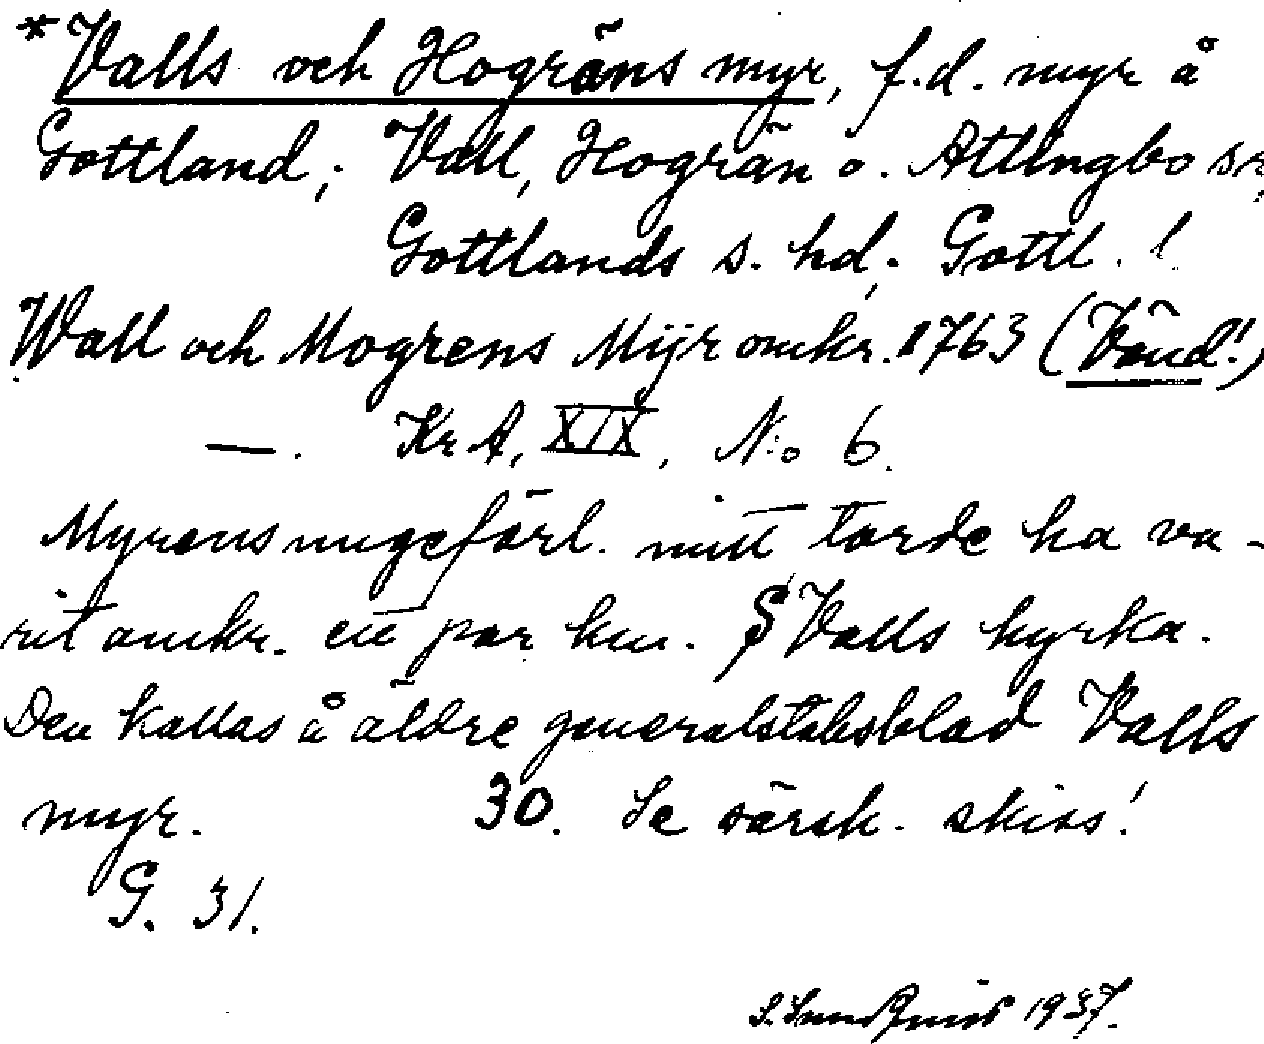 *Valls och Hogräns myr, f.d. myr å
Gottland; Vall, Hogrän o. Atlingbo sn,
Gottlands s. hd, Gottl. l.
Wall och Mogrens Mijr omkr. 1763 (Vänd!)
—. Kr A, XIX, No 6.
Myrens ungefärl. mitt torde ha va-
rit omkr. ett par km. S Valls kyrka.
Den kallas å äldre generalstabsblad Valls
myr. 30. Se särsk. skiss!
G. 31.
S. Sundquist 1937.